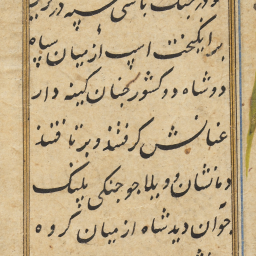 برانگیخت اسپ از میان سپاه
دو شاه دو کشور چنان کینه دار
عنانش گرفتند و برتافتند
دمانشان دو ویلا چو جنگی پلنگ
چو آن دید شاه از میان گروه